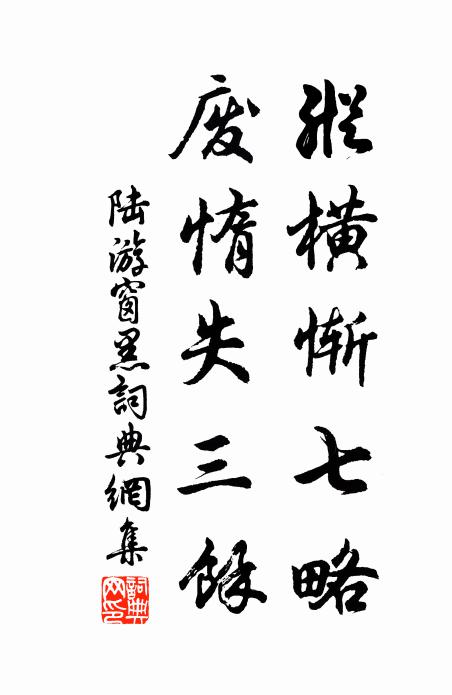 縱橫慚七略
廢惰失三餘
陸游窗黑詞典網集
詞典
网印